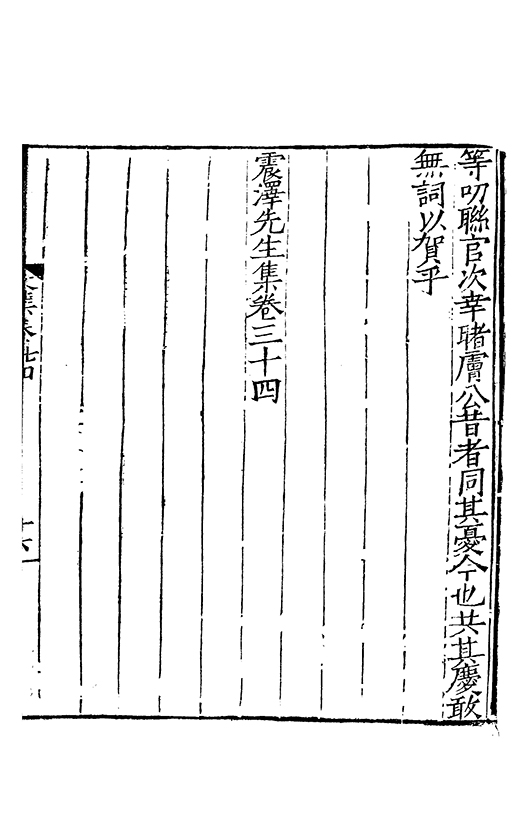 等叨聯官次幸睹膚公昔者同其憂今也共其慶敢
無詞以賀乎
震澤先生集卷三十四